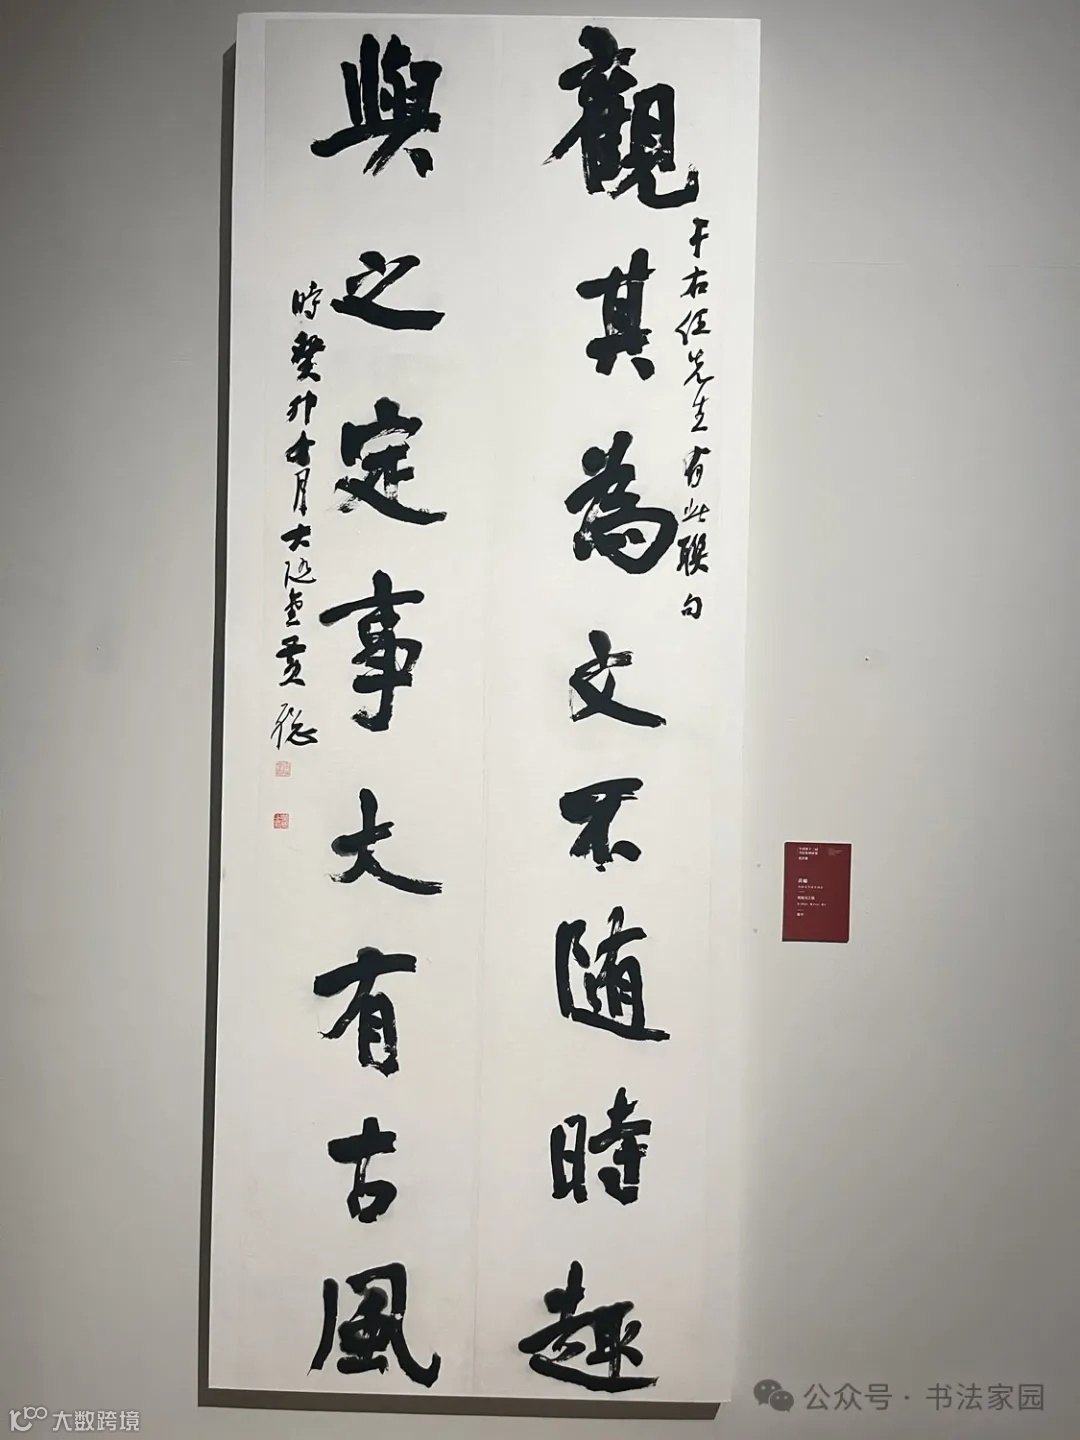 觀其為文不随時趣
于右任先生有此聯句
與之定事大有古風
時癸卯十月大隱堂黄
公众号·书法家园
大数跨境